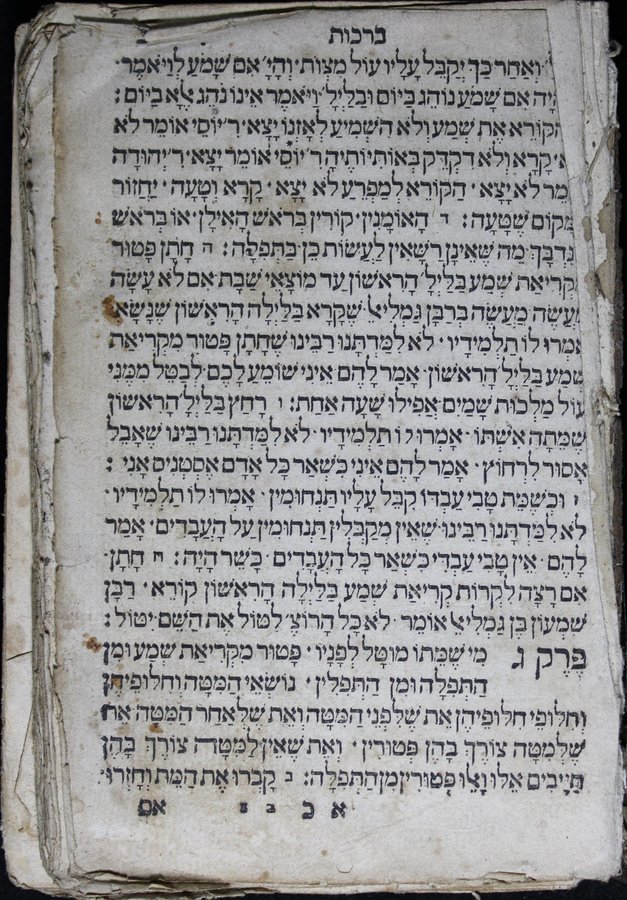 ברכות
וְאַחַר כַּךְ יְקַבֵּל עָלָיו עוֹל מִצְוֹת׳ וְהָיָ׳ אִם שָׁמֹעַ לְוַיֹּאמֶר׳
אִם שָׁמֹעַ נוֹהֵג בַּיּוֹם וּבַלַּיְלָ׳ וַיֹּאמֶר אֵינוֹ נוֹהֵג אֶלָּא בַיּוֹם :
הַקּוֹרֵא אֶת שְׁמַע וְלֹא הִשְׁמִיעַ לְאָזְנוֹ יָצָא׳ ר׳ יוֹסֵי אוֹמֵר לֹא
קָרָא וְלֹא דִקְדֵּק בְּאוֹתִיּוֹתֶיהָ ר׳ יוֹסֵי אוֹמֵר יָצָא׳ ר׳ יְהוּדָה
לֹא יָצָא׳ הַקּוֹרֵא לְמַפְרֵעַ לֹא יָצָא׳ קָרָא וְטָעָה׳ יַחֲזוֹר
מְקוֹם שֶׁטָּעָה : ד הָאוּמָנִין׳ קוֹרִין בְּרֹאשׁ הָאִילָן׳ אוֹ בְּרֹאשׁ
מַה שֶּׁאֵינָן רַשָּׁאִין לַעֲשׂוֹת כֵּן בַּתְּפִלָּה : ה חָתָן פָּטוּר
מִקְּרִיאַת שְׁמַע בַּלַּיְלָ׳ הָרִאשׁוֹן עַד מוֹצָאֵי שַׁבָּת אִם לֹא עָשָׂה
מַעֲשֶׂה מַעֲשֶׂה בְּרַבָּן גַּמְלִיאֵל שֶׁקָּרָא בַּלַּיְלָה הָרִאשׁוֹן שֶׁנָּשָׂא
אָמְרוּ לוֹ תַלְמִידָיו׳ לֹא לִמַּדְתָּנוּ רַבֵּינוּ שֶׁחָתָן פָּטוּר מִקְּרִיאַת
שְׁמַע בַּלַּיְל הָרִאשׁוֹן׳ אָמַר לָהֶם אֵינִי שׁוֹמֵעַ לָכֶם לְבַטֵּל מִמֶּנִּי
עוֹל מַלְכוּת שָׁמַיִם אֲפִילוּ שָׁעָה אֶחָת : ו רָחַץ בַּלֵּיל הָרִאשׁוֹן
שֶׁמֵּתָה אִשְׁתּוֹ׳ אָמְרוּ לוֹ תַלְמִידָיו׳ לֹא לִמַּדְתָּנוּ רַבֵּינוּ שֶׁאָבֵל
אָסוּר לִרְחוֹץ׳ אָמַר לָהֶם אֵינִי כִּשְׁאָר כָּל אָדָם אִסְטְנִיס אָנִי :
ז וּכְשֶׁמֵּת טָבִי עַבְדּוֹ קִבֵּל עָלָיו תַּנְחוּמִין׳ אָמְרוּ לוֹ תַלְמִידָיו׳
לֹא לִמַּדְתָּנוּ רַבֵּינוּ׳ שֶׁאֵין מְקַבְּלִין תַּנְחוּמִין עַל הָעֲבָדִים׳ אָמַר
לָהֶם׳ אֵין טָבִי עַבְדִּי כִּשְׁאָר כָּל הָעֲבָדִים׳ כָּשֵׁר הָיָה : ח חָתָן׳
אִם רָצָה לִקְרוֹת קְרִיאַת שְׁמַע בַּלַּיְלָה הָרִאשׁוֹן קוֹרֵא׳ רַבָּן
שִׁמְעוֹן בֶּן גַּמְלִיאֵל אוֹמֵר׳ לֹא כָּל הָרוֹצֶ׳ לִטּוֹל אֶת הַשֵּׁם יִטּוֹל :
פֶּרֶק ג מִי שֶׁמֵּתוֹ מוּטָּל לְפָנָיו׳ פָּטוּר מִקְּרִיאַת שְׁמַע וּמִן
הַתְּפִלָּה וּמִן הַתְּפִלִּין׳ נוֹשְׂאֵי הַמִּטָּה וְחִלּוּפֵיהֶן
וְחִלּוּפֵי חִלּוּפֵיהֶן אֶת שֶׁלִּפְנֵי הַמִּטָּה וְאֶת שֶׁלְּאַחַר הַמִּטָּה אֶת
שֶׁלַּמִּטָּה צוֹרֶךְ בָּהֶן פְּטוּרִין׳ וְאֶת שֶׁאֵין לַמִּטָּה צוֹרֶךְ בָּהֶן
חַיָּיבִים אֵלּוּ וָאֵלּוּ פְּטוּרִין מִן הַתְּפִלָּה : ב קָבְרוּ אֶת הַמֵּת וְחָזְרוּ׳
א כ ב 2 אם